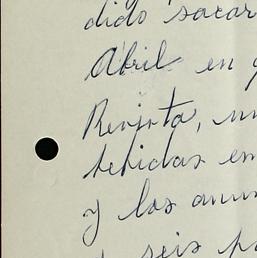 dido sacar
Abril en
Revista,
bebidas en
y los
seis